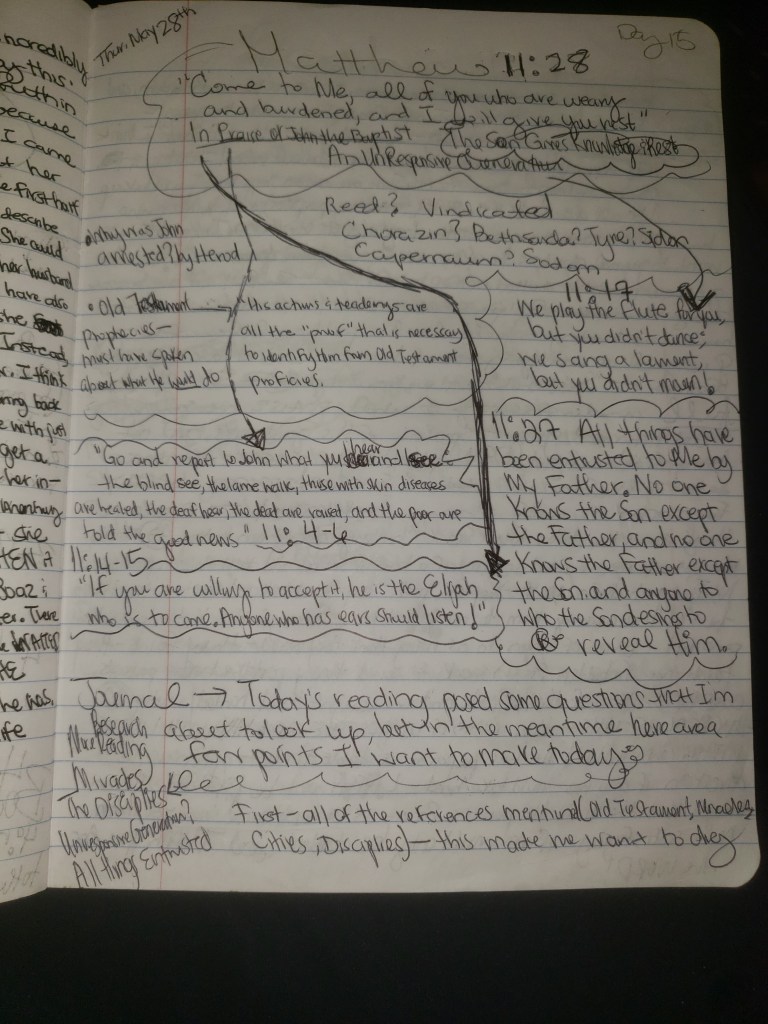 ncredibly
by this.
within
because
I came
at her
e first half
describe
She could
her husband
have also
she
Instead,
r. I think
bring back
e with just
get a
her in-
she
TEN it
Boaz is
er. There
he was.
ife
Thur. Nov 28th
Day 15
Matthew 11:28
"Come to Me, all of you who are weary
and burdened, and I will give you rest"
In Praise of John the Baptist
The Son Gives Knowledge & Rest
An UnResponsive Generation
Reed? Vindicated
Chorazin? Bethsaida? Tyre? Sidon
Capernaum? Sodom
• why was John
arrested? by Herod
• Old Testament →
prophecies—
must have spoken
about what He would do
"His actions & teachings are
all the "proof" that is necessary
to identify Him from Old Testament
proficies.
11:17
We play the flute for you,
but you didn't dance;
we sang a lament,
but you didn't mourn!
"Go and report to John what you hear and see:
the blind see, the lame walk, those with skin diseases
are healed, the deaf hear, the dead are raised, and the poor are
told the good news" 11:4-6
11:14-15
"If you are willing to accept it, he is the Elijah
who is to come. Anyone who has ears should listen!"
11:27 All things have
been entrusted to Me by
My Father. No one
knows the Son except
the Father, and no one
knows the Father except
the Son and anyone to
who the Son desires to
reveal Him.
Journal → Today's reading posed some questions that I'm
about to look up, but in the meantime here are a
few points I want to make today
Research
More Reading
Miracles
The Disciplies
Unresponsive Generation?
All things Entrusted
First - all of the references mentiond (Old Testament, Miracles,
Cities, Disciplies) — this made me want to dig